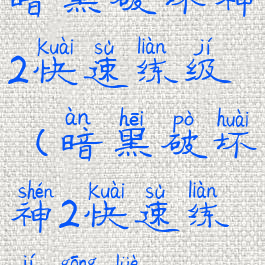 暗黑破坏神
Kuài sù liàn jí
2快速练级
àn hēi pò huài
(暗黑破坏
shén Kuài sù liàn
神2快速练
jí gōng lüè